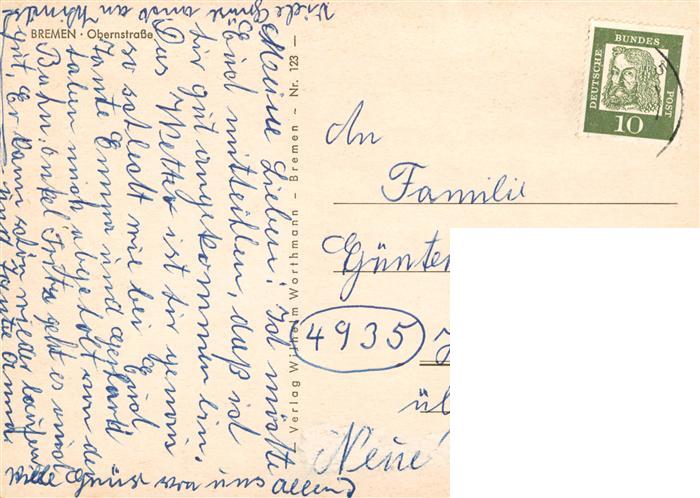 BREMEN · Obernstraße
Meine Lieben! Ich möchte
Euch mitteilen, daß ich
hir gut angekommen bin.
Das Wetter ist hir genau
so schlecht wie bei Euch
Tante Emma und Gerhard
haben mich abgeholt von der
Bahn. Onkel Fritz geht es
gut, Er kann schon wieder laufen
und Tante
Viele Grüse von uns allen
Viele Grüse auch an
— Verlag Wilhelm Worthmann – Bremen – Nr. 123 —
DEUTSCHE BUNDES POST
10
An
Familie
Günter
4935
ü
Neue